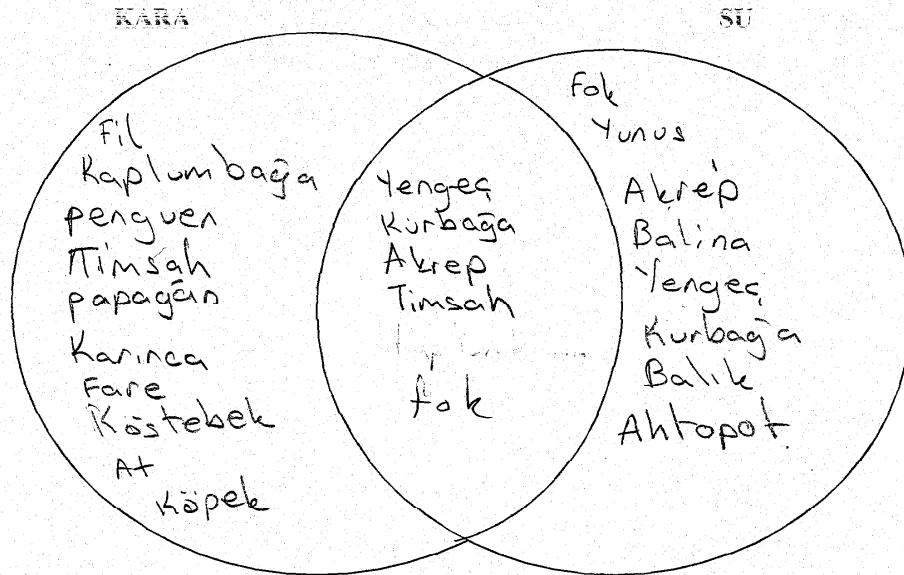 KARA
SU
Fil
Kaplumbağa
penguen
Timsah
papağan
Karınca
Fare
Köstebek
At
Köpek
Yengeç
Kurbağa
Akrep
Timsah
fok
Fok
Yunus
Akrep
Balina
Yengeç
Kurbağa
Balık
Ahtopot